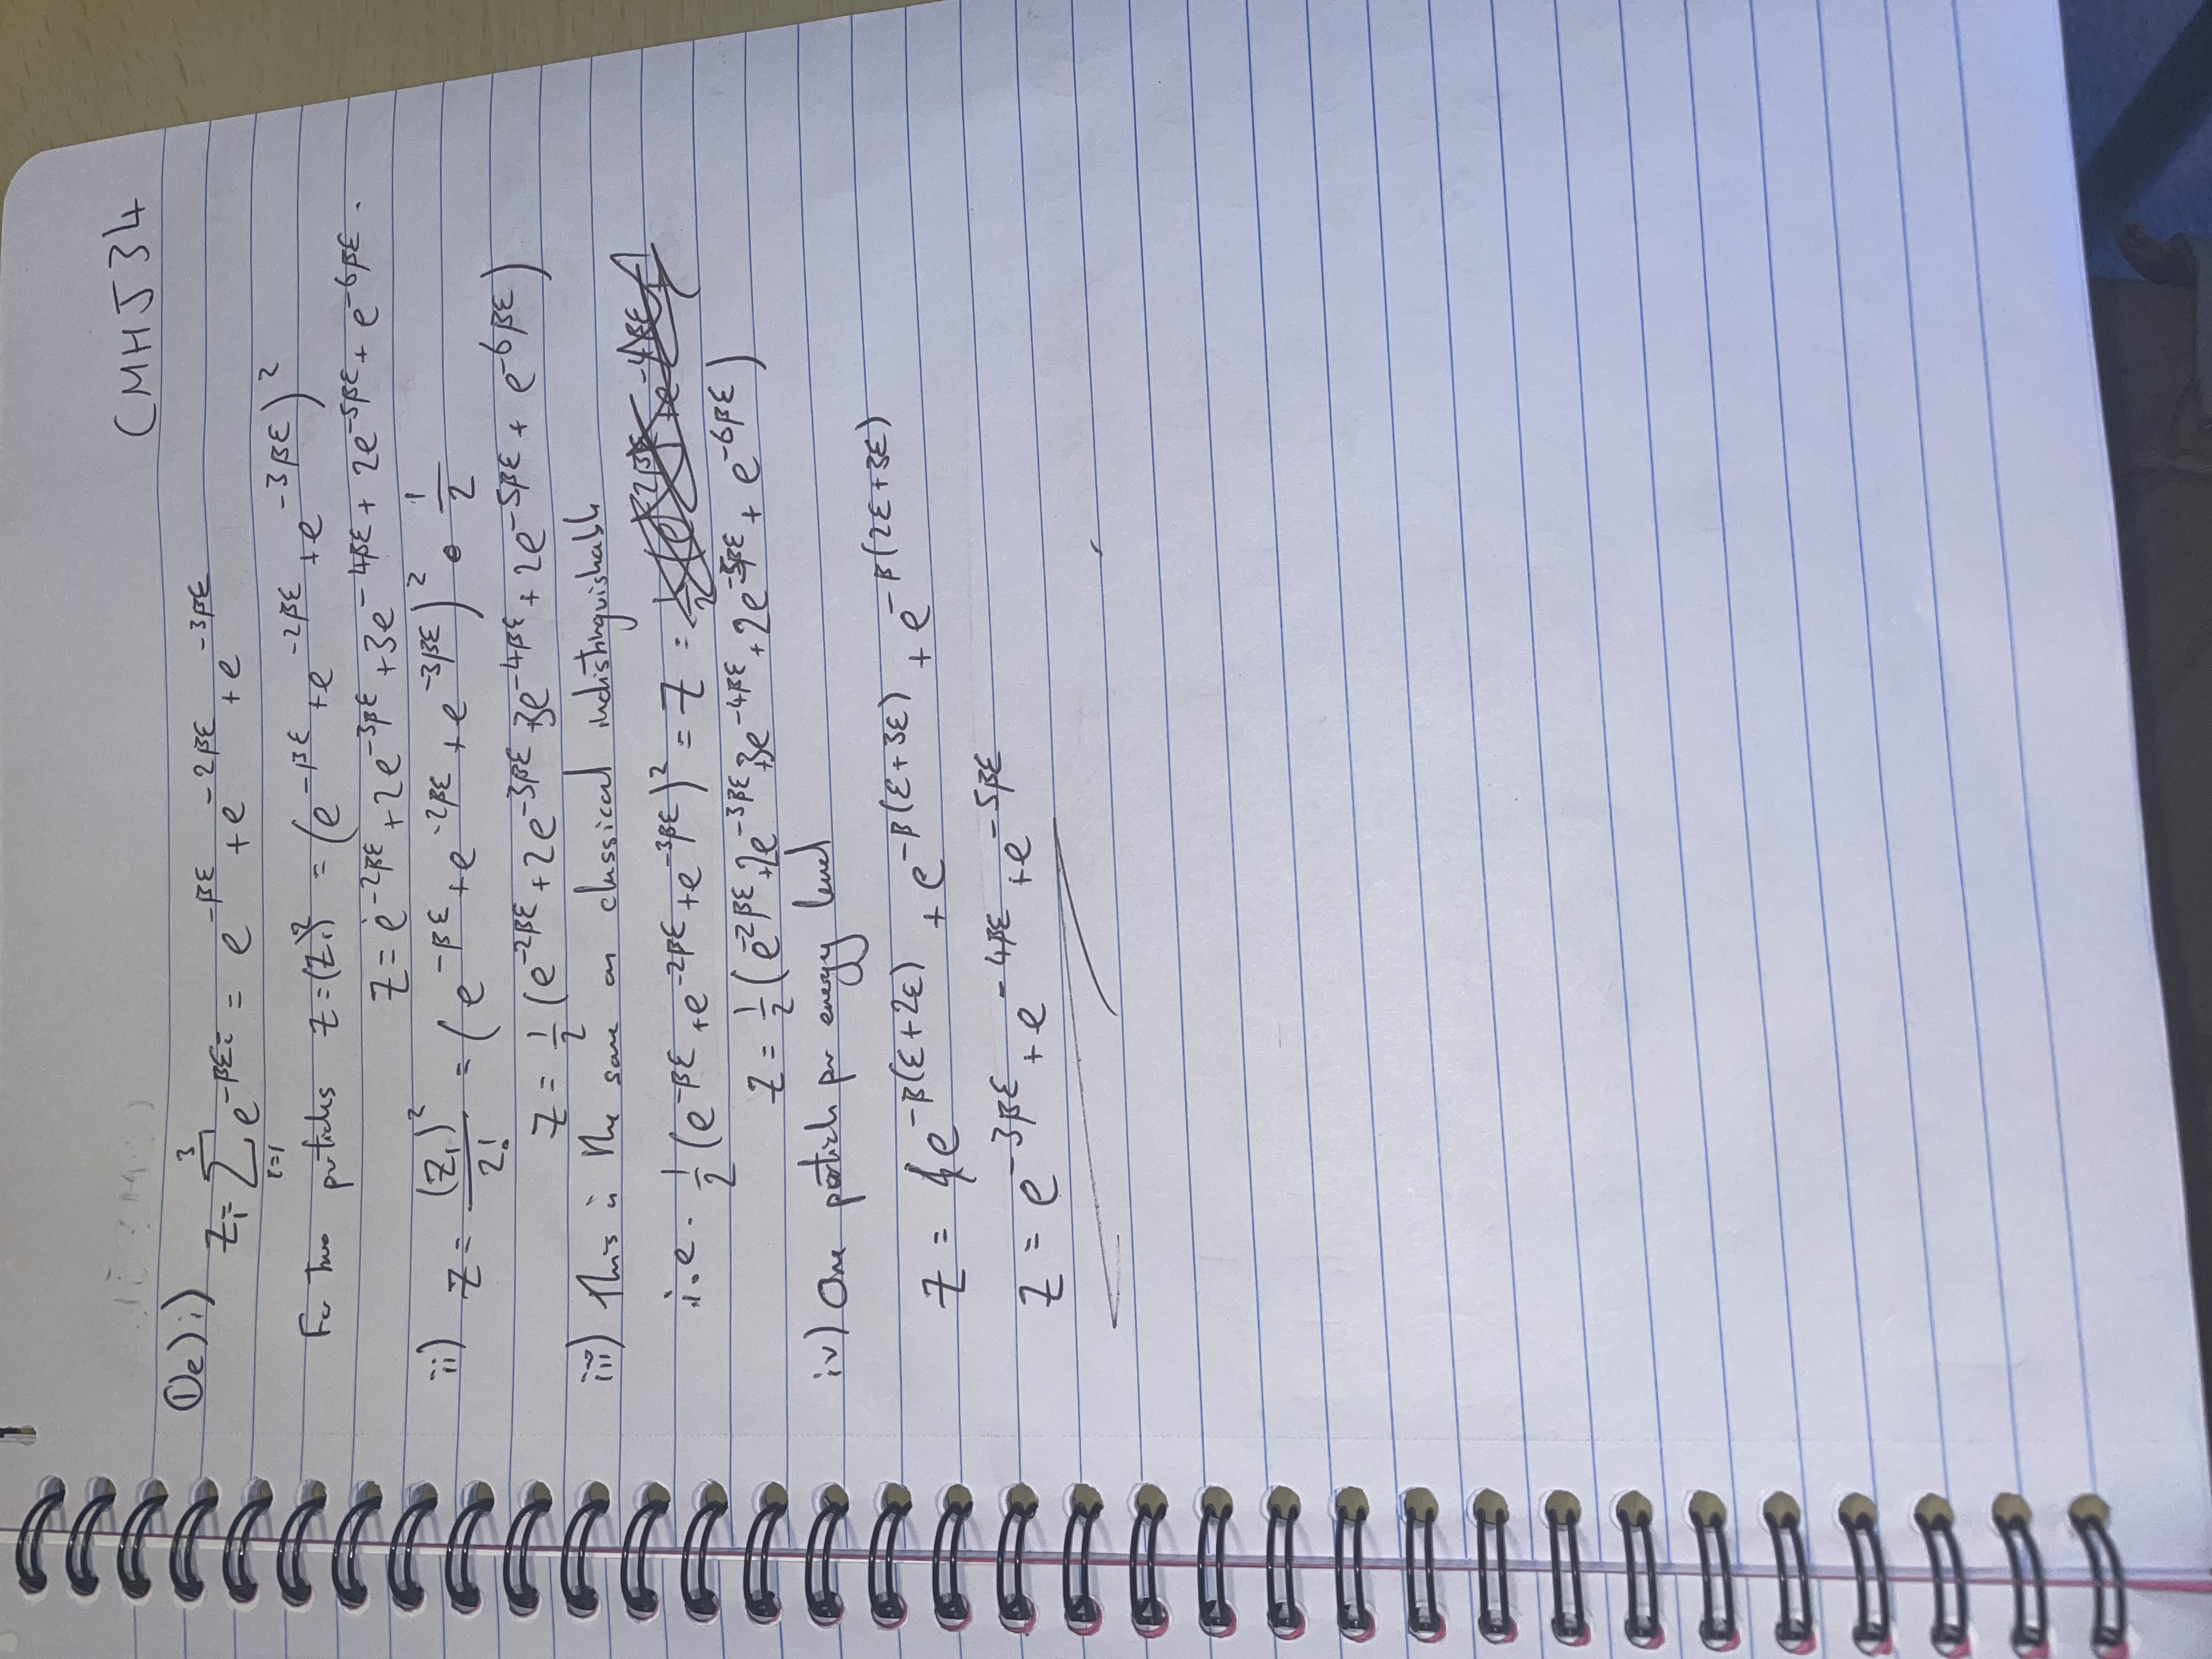 CMHJ34
① e) i) Z₁ = Σ_{i=1}^{3} e^{-βε_i} = e^{-βε} + e^{-2βε} + e^{-3βε}
For two particles Z = (Z₁)² = (e^{-βε} + e^{-2βε} + e^{-3βε})²
Z = e^{-2βε} + 2e^{-3βε} + 3e^{-4βε} + 2e^{-5βε} + e^{-6βε} .
ii) Z = (Z₁)²/2! = (e^{-βε} + e^{-2βε} + e^{-3βε})² • 1/2
Z = 1/2 (e^{-2βε} + 2e^{-3βε} + 3e^{-4βε} + 2e^{-5βε} + e^{-6βε})
iii) This is the same as classical indistinguishable
i.e. 1/2 (e^{-βε} + e^{-2βε} + e^{-3βε})² = Z =
Z = 1/2 (e^{-2βε} + 2e^{-3βε} + 3e^{-4βε} + 2e^{-5βε} + e^{-6βε})
iv) One particle per energy level
Z = e^{-β(ε+2ε)} + e^{-β(ε+3ε)} + e^{-β(2ε+3ε)}
Z = e^{-3βε} + e^{-4βε} + e^{-5βε}